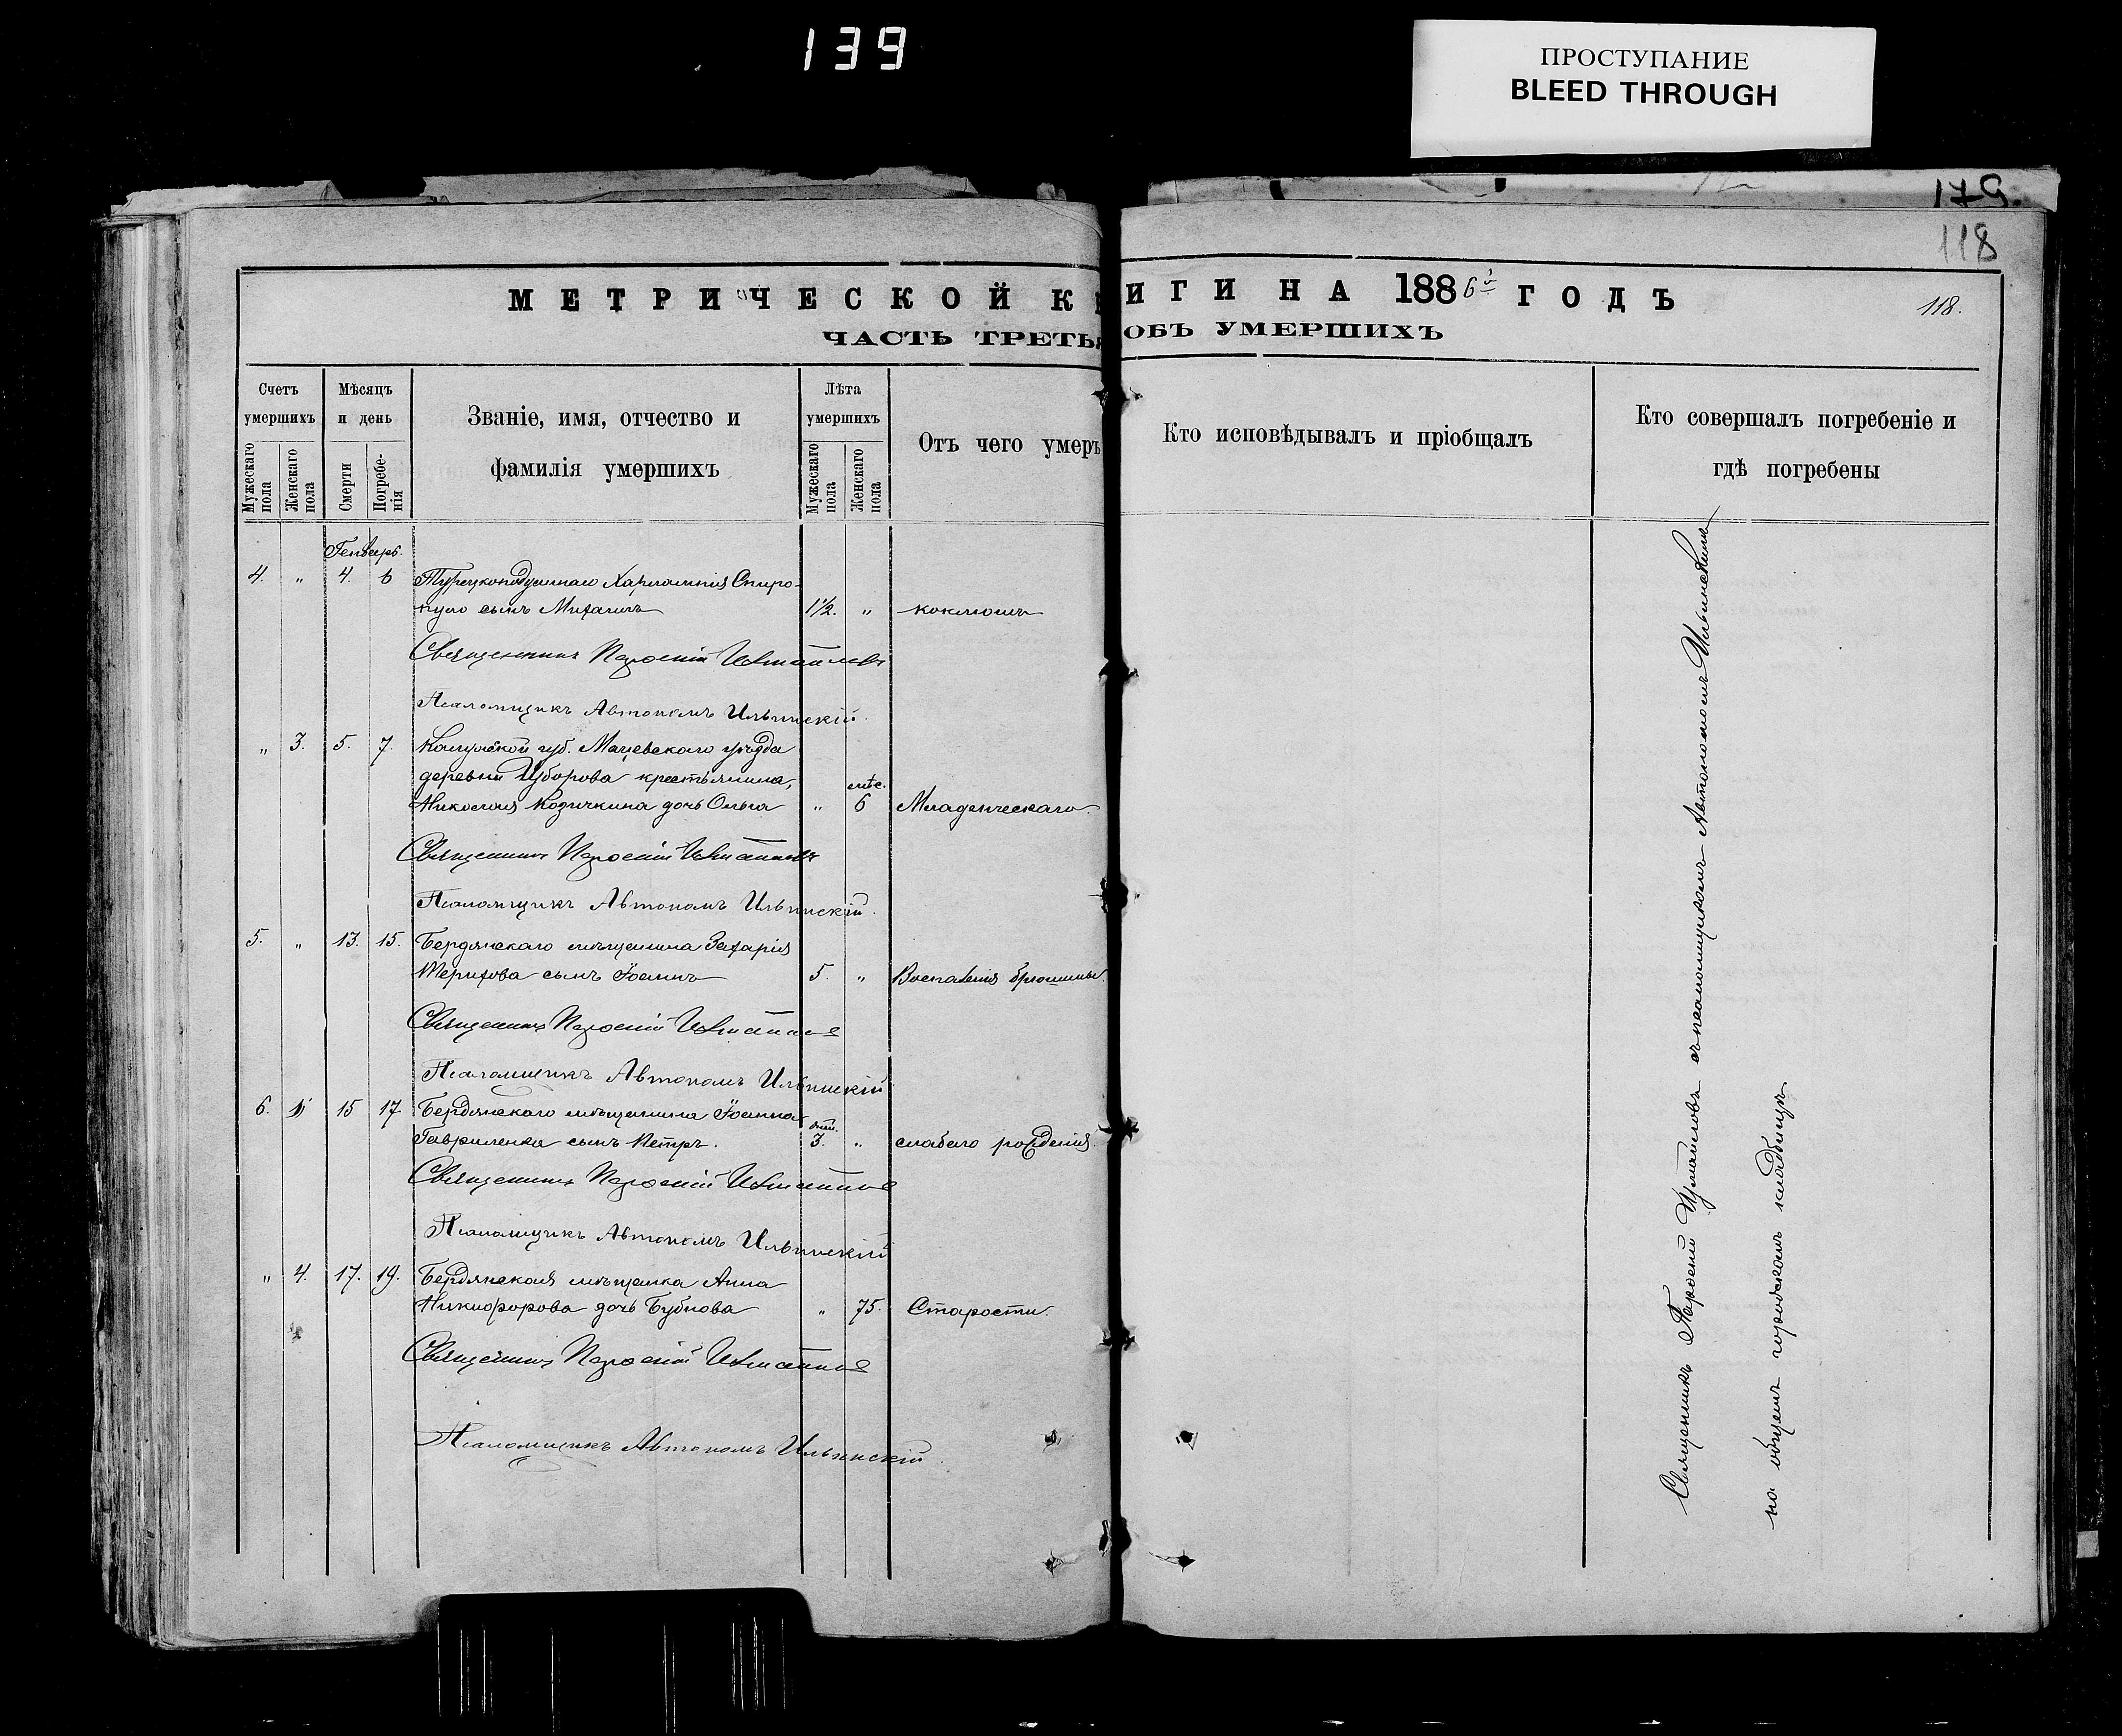 139
ПРОСТУПАНИЕ
BLEED THROUGH
179.
118
МЕТРИЧЕСКОЙ К ИГИ НА 1886й ГОДЪ
118.
ЧАСТЬ ТРЕТЬЯ ОБЪ УМЕРШИХЪ
Счетъ умершихъ
Мѣсяцъ и день
Званіе, имя, отчество и фамилія умершихъ
Лѣта умершихъ
Отъ чего умеръ
Кто исповѣдывалъ и пріобщалъ
Кто совершалъ погребеніе и гдѣ погребены
Мужескаго пола
Женскаго пола
Смерти
Погребенія
Мужескаго пола
Женскаго пола
Генварь.
4. " 4. 6 Турецкоподданнаго Харлампія Спиро-
пуло сынъ Михаилъ 1½. " коклюшъ
Священникъ Парѳеній Измаиловъ
Псаломщикъ Автономъ Ильинскій.
" 3. 5. 7. губ. уѣзда
деревни крестьянина, мѣс.
Николая дочь Ольга " 6 Младенческаго.
Священникъ Парѳеній Измаиловъ
Псаломщикъ Автономъ Ильинскій.
5. " 13. 15. Бердянскаго мѣщанина Захарія
сынъ Іоаннъ 5. " Воспаленія брюшины.
Священникъ Парѳеній Измаиловъ
Псаломщикъ Автономъ Ильинскій
6. " 15 17. Бердянскаго мѣщанина Іоанна дней.
Гавриленка сынъ Петръ. 3. " слабаго рожденія.
Священникъ Парѳеній Измаиловъ
Псаломщикъ Автономъ Ильинскій
" 4. 17. 19. Бердянская мѣщанка Анна
Никифорова дочь Бубнова " 75. Старости.
Священникъ Парѳеній Измаиловъ
Псаломщикъ Автономъ Ильинскій.
Священникъ Парѳеній Измаиловъ съ псаломщикомъ Автономомъ Ильинскимъ
на общемъ городскомъ кладбищѣ